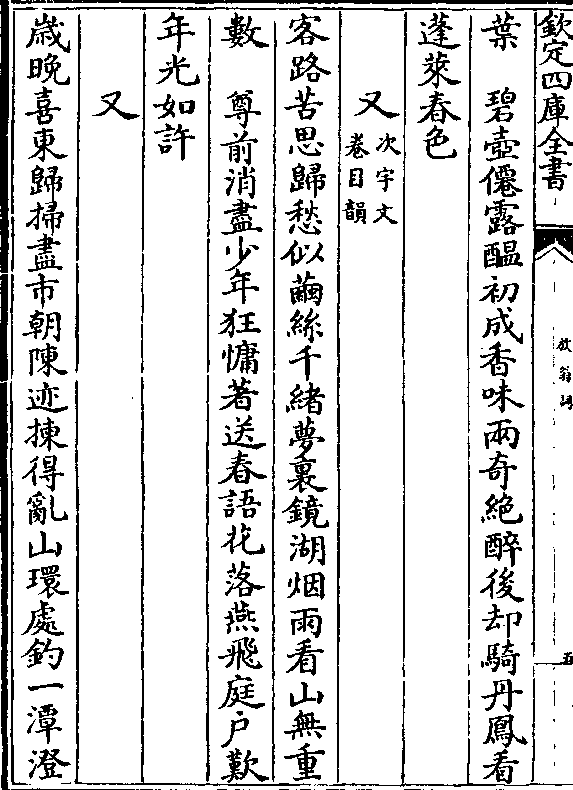 欽定四庫全書
放翁詞
五
葉　碧壺僊露醖初成香味兩奇絶醉後却騎丹鳳看
蓬萊春色
又次宇文
卷目韻
客路苦思歸愁似繭絲千緒夢裏鏡湖烟雨看山無重
數　尊前消盡少年狂慵著送春語花落燕飛庭户歎
年光如許
又
歲晚喜東歸掃盡市朝陳迹揀得亂山環處釣一潭澄